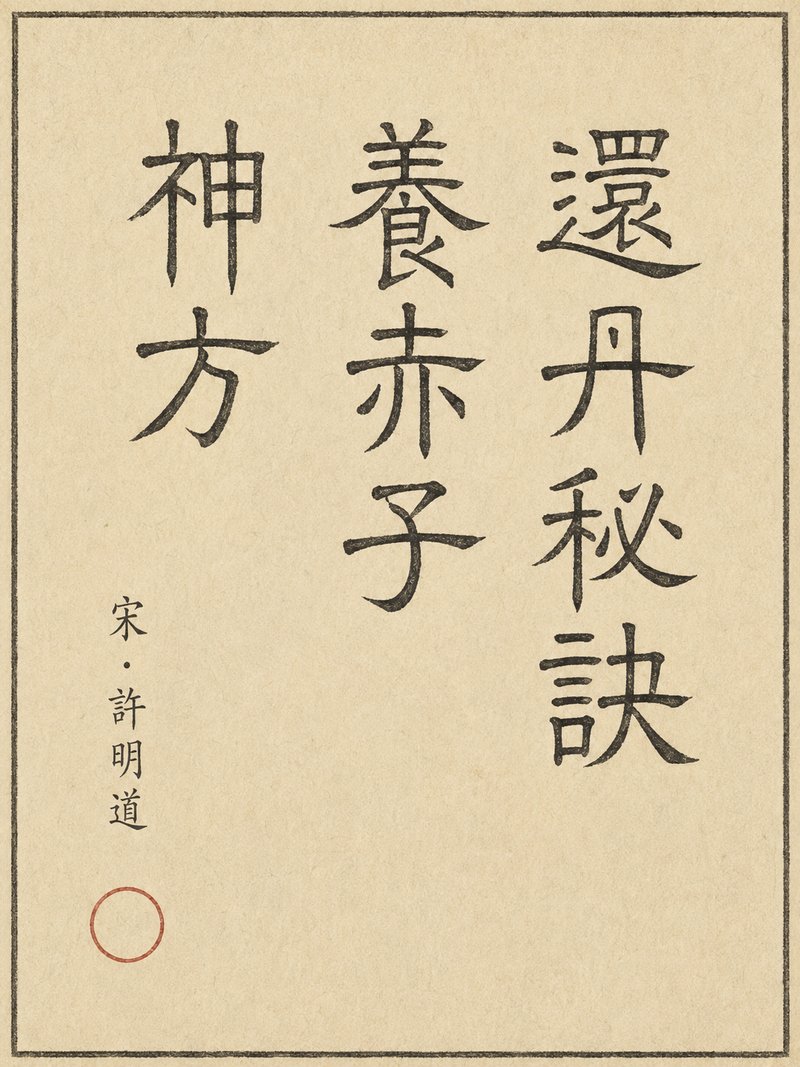 還丹秘訣
養赤子
神方
宋・許明道